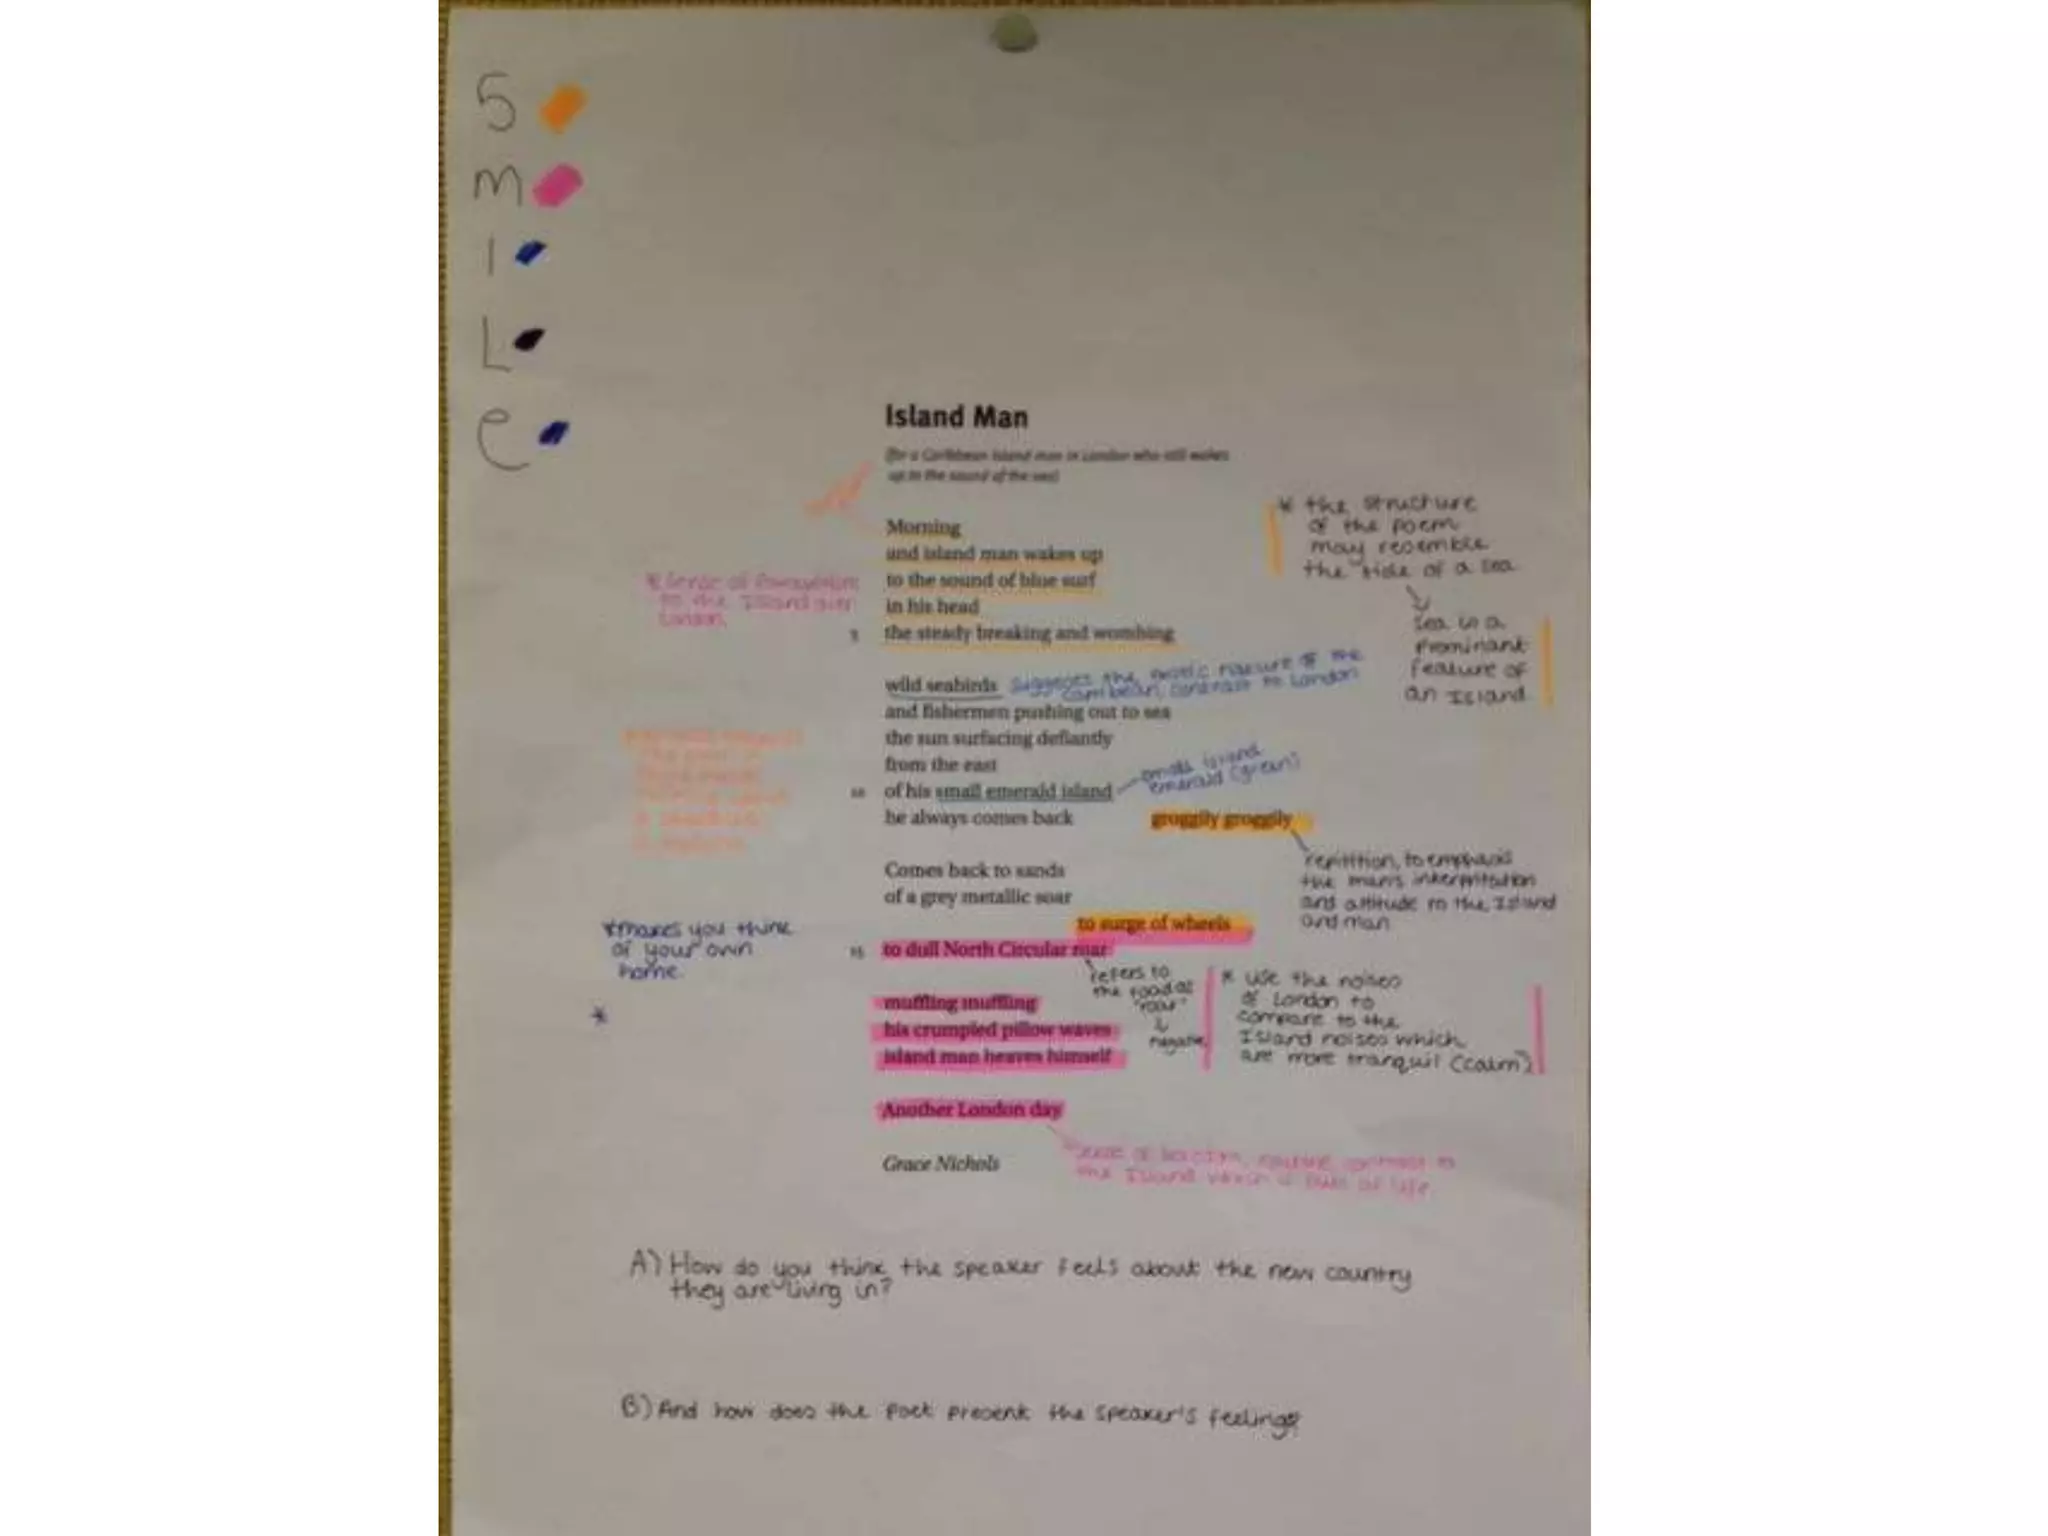 S
M
I
L
e
Island Man
(for a Caribbean island man in London who still wakes
up to the sound of the sea)
Morning
and island man wakes up
to the sound of blue surf
in his head
5 the steady breaking and wombing
wild seabirds
and fishermen pushing out to sea
the sun surfacing defiantly
from the east
10 of his small emerald island
he always comes back groggily groggily
Comes back to sands
of a grey metallic soar
to surge of wheels
15 to dull North Circular roar
muffling muffling
his crumpled pillow waves
island man heaves himself
Another London day
Grace Nichols
* the structure
of the poem
may resemble
the tide of a sea
sea is a
prominant
feature of
an Island
* sense of
to the Island over
London
suggests the exotic nature of the
carribean, contrast to London
small island
emerald (green)
repitition, to emphasis
the man's
and attitude to the Island
and man
*makes you think
of your own
home.
*
refers to
the road as
"roar"
negative
* use the noises
of London to
compare to the
Island noises which
are more tranquil (calm)
sense of routine, contrast to
the Island which is full of life
A) How do you think the speaker feels about the new country
they are living in?
B) And how does the poet present the speaker's feelings?